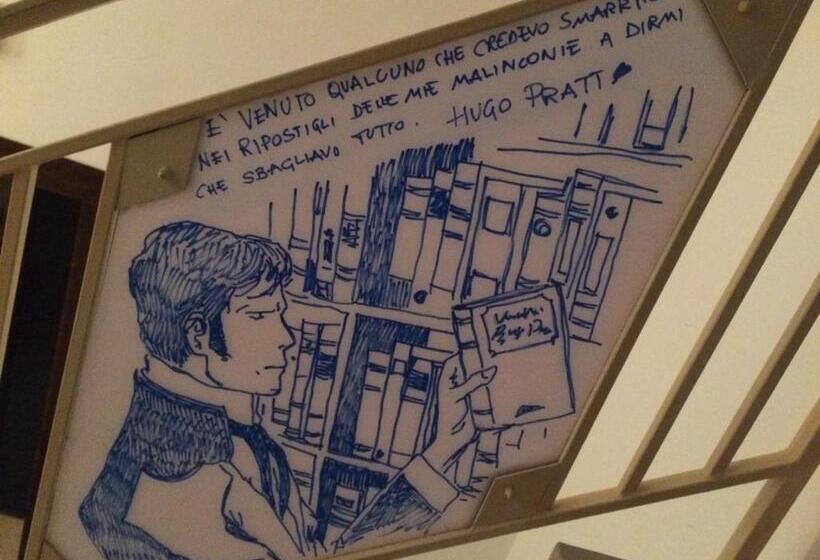 È VENUTO QUALCUNO CHE CREDEVO
NEI RIPOSTIGLI DELLE MIE MALINCONIE A DIRMI
CHE SBAGLIAVO TUTTO. HUGO PRATT